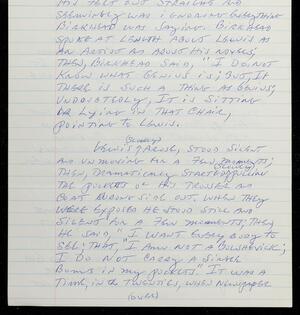 HIS FEET OUT STRAIGHT AND
SEEMINGLY WAS IGNORING EVERYTHING
BIRKHEAD WAS SAYING. BIRKHEAD
SPOKE AT LENGTH ABOUT LEWIS AS
AN ARTIST AS ABOUT HIS NOVELS;
THEN, BIRKHEAD SAID, "I DO NOT
KNOW WHAT GENIUS IS; BUT, IF
THERE IS SUCH A THING AS GENIUS,
UNDOUBTEDLY, IT IS SITTING
OR LYING IN THAT CHAIR,
POINTING TO LEWIS.
(slowly)
LEWIS AROSE, STOOD SILENT
AND UNMOVING FOR A FEW MOMENTS;
THEN, DRAMATICALLY STARTED PULLING
THE POCKETS OF HIS TROUSER AND
COAT INSIDE OUT. WHEN THEY
WERE EXPOSED HE STOOD STILL AND
SILENT FOR A FEW MOMENTS; THEN
HE SAID, "I WANT EVERYBODY TO
SEE; THAT, "I AM NOT A BOLSHEVICK;
I DO NOT CARRY A SINGLE
BOMB IN MY POCKETS." IT WAS A
TIME, IN THE TWENTIES, WHEN NEWSPAPER
(OVER)